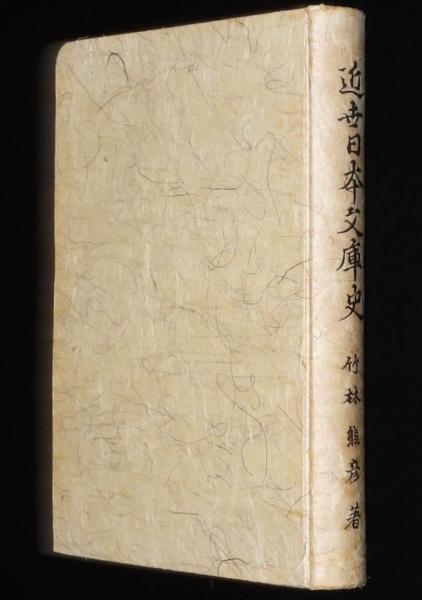 近世日本文庫史 竹林熊彦著